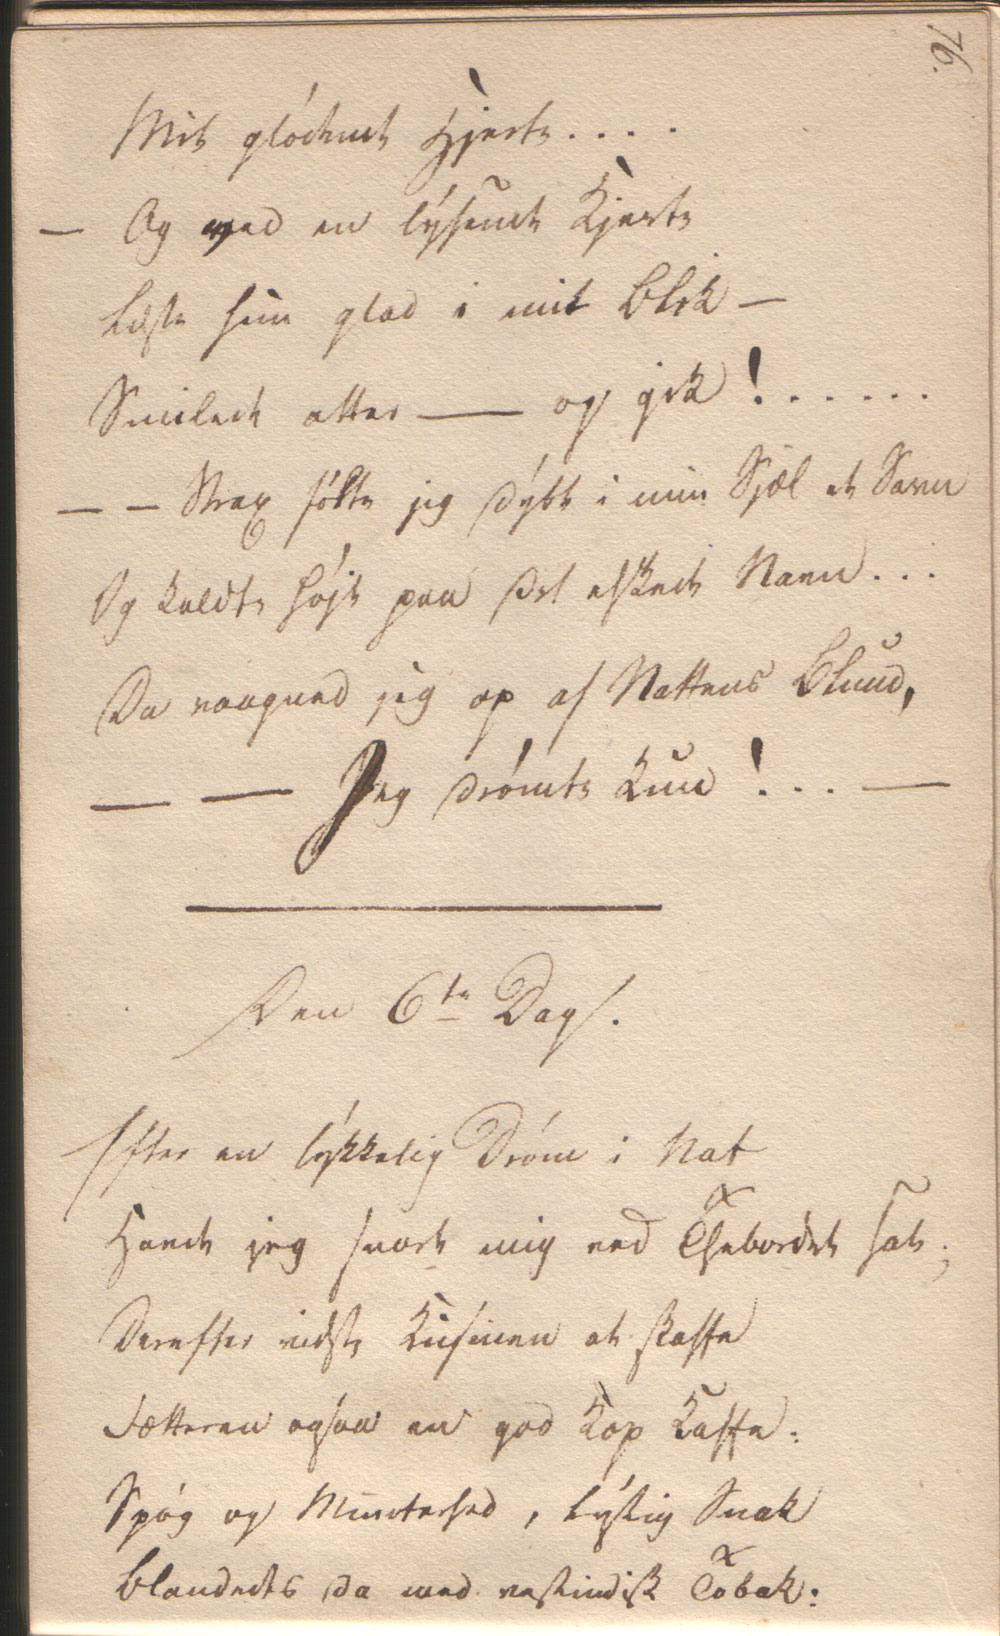 76.
Mit glödende Hjerte....
— Og ved en lysende Kjerte
Læste hun glad i mit Blik —
Smilede atter — og gik!......
— — Strax fölte jeg dybt i min Sjæl et Savn
Og kaldte höjt paa det elskede Navn...
Da vaagned jeg op af Nattens Blund,
— — Jeg drömte kun!... —
Den 6te Dag.
Efter en lykkelig Dröm i Nat
Havde jeg snart mig ved Thebordet sat;
Derefter vidste Kusinen at skaffe
Fætteren ogsaa en god Kop Kaffe:
Spög og Munterhed, lystig Snak
Blandedes da med vestindisk Tobak: